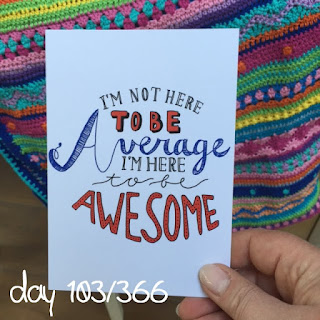 I'M NOT HERE
TO BE
Average
I'M HERE
to be
AWESOME
day 103/366